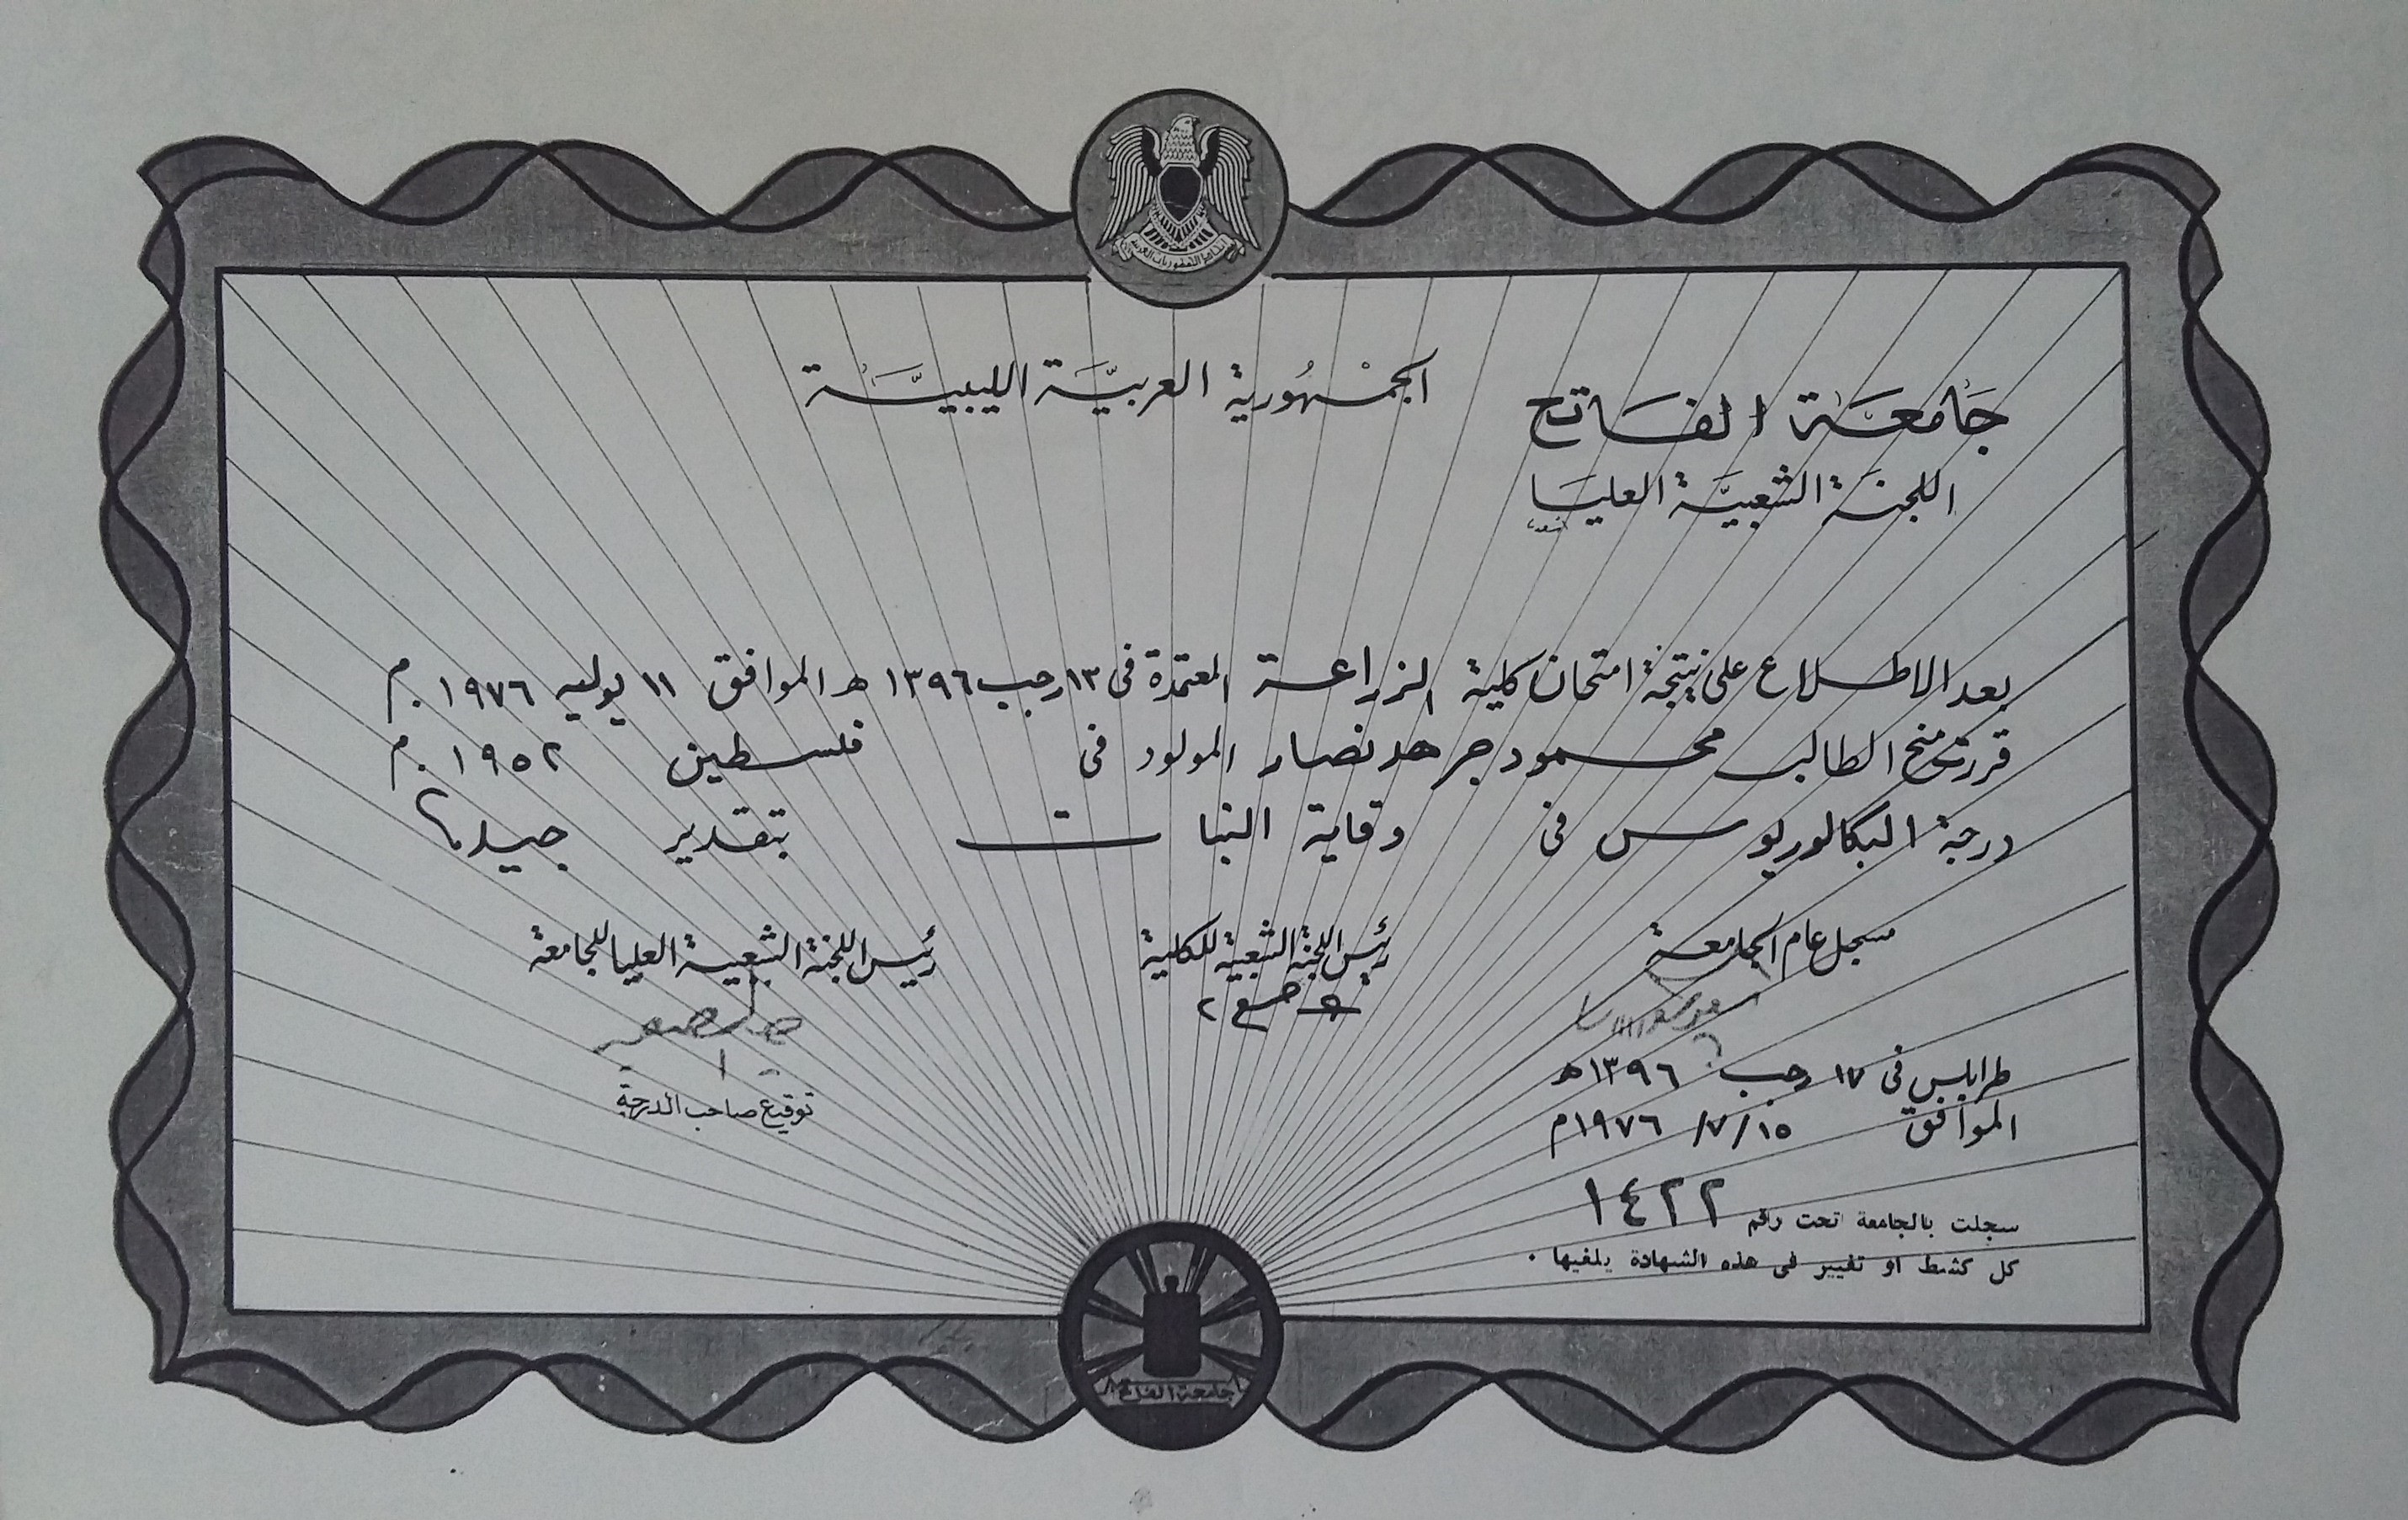 الجمهورية العربية الليبية
جامعة الفاتح
اللجنة الشعبية العليا
بعد الاطلاع على نتيجة امتحان كلية الزراعة المعتمدة فى ١٣ رجب ١٣٩٦ هـ الموافق ١١ يوليه ١٩٧٦ م
قررت منح الطالب محمود جرهد نصار المولود فى فلسطين ١٩٥٢ م
درجة البكالوريوس فى وقاية النبات بتقدير جيد
مسجل عام الجامعة
رئيس اللجنة الشعبية للكلية
رئيس اللجنة الشعبية العليا للجامعة
توقيع صاحب الدرجة
طرابلس فى ١٧ رجب ١٣٩٦ هـ
الموافق ١٥ /٧/ ١٩٧٦ م
سجلت بالجامعة تحت رقم ١٤٢٢
كل كشط او تغيير فى هذه الشهادة يلغيها .
جامعة الفاتح